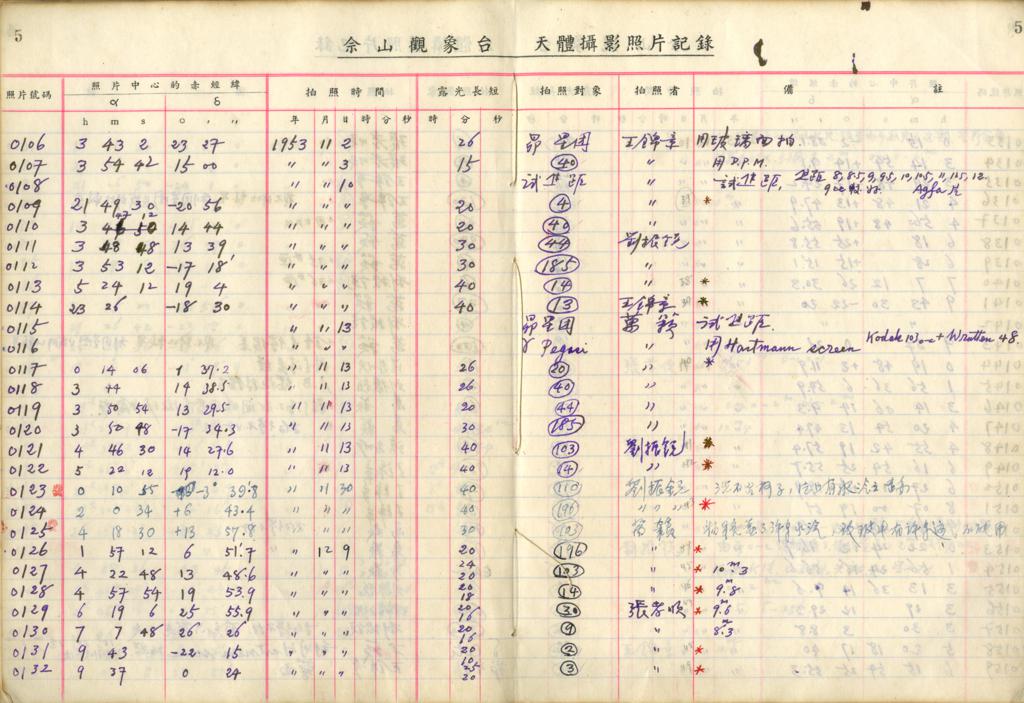 5
5
佘山觀象台 天體攝影照片記錄
照片號碼 照片中心的赤經緯 拍照時間 露光長短 拍照對象 拍照者 備 註
α δ
h m s ° ′ ″ 年 月 日 時 分 秒 時 分 秒
0106 3 43 2 23 27 1953 11 2 26 昴星团 王錦 用玻璃面拍
0107 3 54 42 15 00 " " 3 15 40 " 用 P.P.M.
0108 " " 10 試 距 " 試 距 8, 8.5, 9, 9.5, 10, 10.5, 11, 11.5, 12. Agfa 片
0109 21 49 30 -20 56 " " " 20 4 " *
0110 3 47 12 14 44 " " " 20 40 "
0111 3 48 48 13 39 " " " 30 44 劉振銳
0112 3 53 12 -17 18′ " " " 30 185 "
0113 5 24 12 19 4 " " " 40 14 " *
0114 23 26 -18 30 " " " 40 13 王錦 *
0115 " 11 13 昴星团 萬籟 試 距.
0116 " " " γ Pegasi " 用 Hartmann screen Kodak + Wratten 48.
0117 0 14 06 1 37.2 " 11 13 26 20 " *
0118 3 44 14 38.5 " 11 13 26 40 "
0119 3 50 54 13 29.5 " 11 13 20 44 "
0120 3 50 48 -17 34.3 " 11 13 30 185 "
0121 4 46 30 14 27.6 " 11 13 40 103 劉振銳 *
0122 5 22 12 19 12.0 " 11 13 40 14 " *
0123 0 10 55 -3° 39′.8 " 11 30 40 110 劉振銳
0124 2 0 34 +6 43.4 " " " 40 196 " *
0125 4 18 30 +13 57.8 " " " 30 103 萬籟
0126 1 57 12 6 51′.7 " 12 9 20 196 " *
0127 4 22 48 13 48.6 " " " 24 20 103 " * 10ᵐ.3
0128 4 57 54 19 53.9 " " " 20 18 14 " * 9.8
0129 6 19 6 25 55.9 " " " 20 16 30 張孝順 * 9ᵐ.6
0130 7 7 48 26 26 " " " 20 16 9 " 8ᵐ.3
0131 9 43 -22 15 " " " 20 10 2 " *
0132 9 37 0 24 " " " 25 20 3 " *